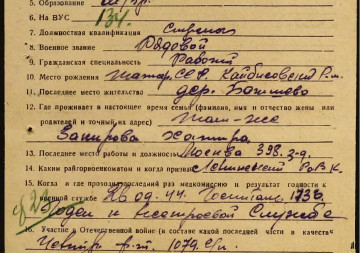 5. Образование
6. На ВУС 134.
7. Должностная квалификация Стрелок
8. Военное звание Рядовой
9. Гражданская специальность Рабочий
10. Место рождения Татар. ССР, Кайбисовский р.н.
11. Последнее место жительства дер. Бачишево
12. Где проживает в настоящее время семья (фамилия, имя и отчество жены или
родителей и точный их адрес) Там-же
Закирова
13. Последнее место работы и должность Москва 398. з-д.
14. Каким райгорвоенкоматом и когда призван Ленинский РВК
15. Когда и где проходил последний раз медкомиссию и результат годности к
военной службе 44. Госпиталь 1736
Годен к нестроевой Службе
16. Участие в Отечественной войне (в составе какой последней части и в качестве
1079 с/п